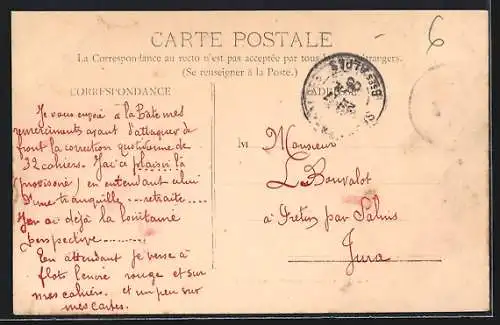 6
CARTE POSTALE
La Correspondance au recto n'est pas acceptée par tous étrangers.
(Se renseigner à la Poste.)
CORRESPONDANCE
Je vous envoie à la hâte mes
remerciements avant d'attaquer de
front la correction quotidienne de
32 cahiers. J'ai ce plaisir là
(provisoire) en entendant celui
d'une tranquille ..... retraite....
J'en ai déjà la lointaine
perspective..........
En attendant je verse à
flots l'encre rouge et sur
mes cahiers. et un peu sur
mes cartes.
ADRESSE
BSES ALPES
Monsieur
L. Bouvalot
à par Salins
Jura